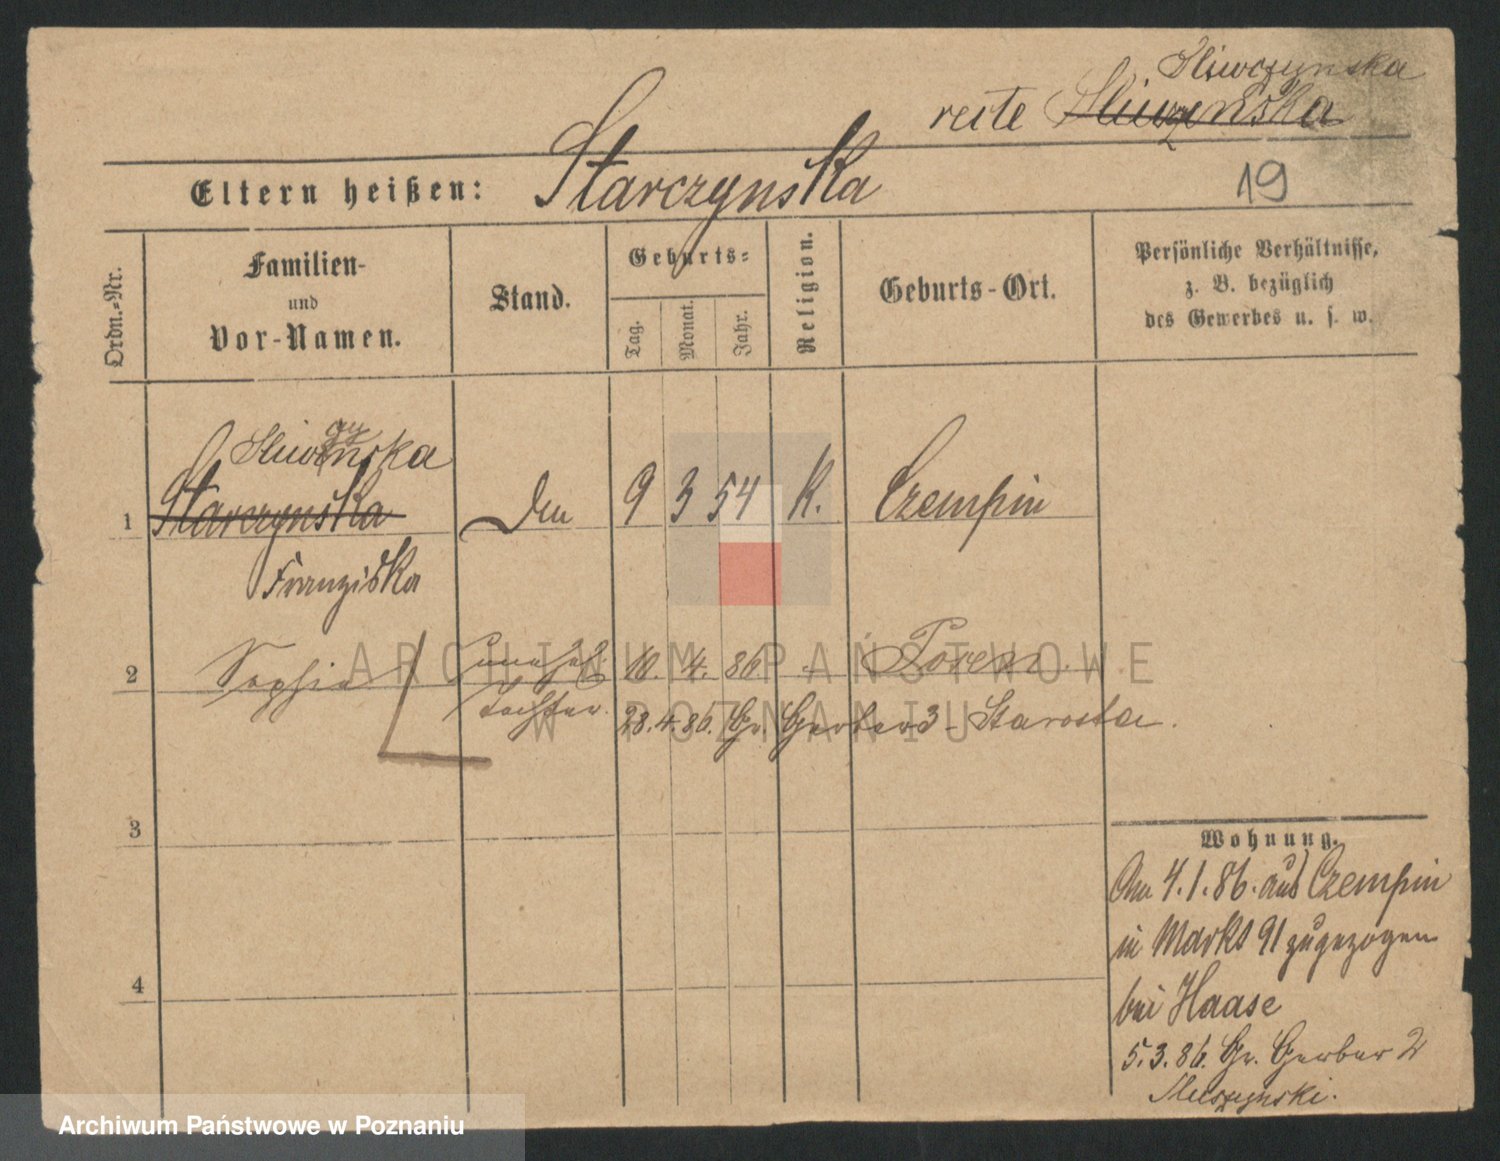 Sliwczynska
recte Sliwzenska
Eltern heißen: Starczynska
19
Ordn.=Nr.
Familien-
und
Vor-Namen.
Stand.
Geburts=
Tag.
Monat.
Jahr.
Religion.
Geburts-Ort.
Persönliche Verhältnisse,
z. B. bezüglich
des Gewerbes u. s. w.
1 Starczynska 9 3 54 K. Czempin
Franziska
2 Sophia unehel. 10. 4. 86. Posen.
Tochter 28. 4. 86. Gr. Gerber 3 - Starosta.
3
4
Wohnung.
Am 4.1.86. aus Czempin
in Markt 91 zugezogen
bei Haase
5.3.86. Gr. Gerber 2
ARCHIWUM PAŃSTWOWE
W POZNANIU
Archiwum Państwowe w Poznaniu